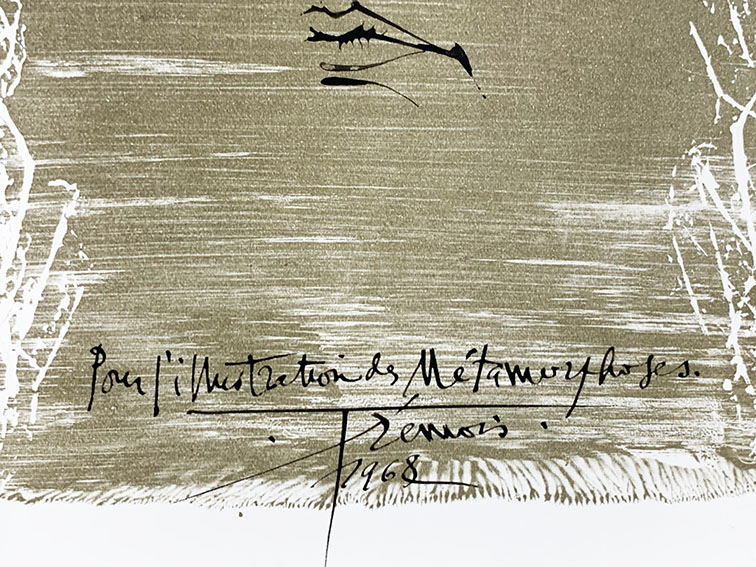 Pour l'illustration des Métamorphoses.
. Trémois .
1968